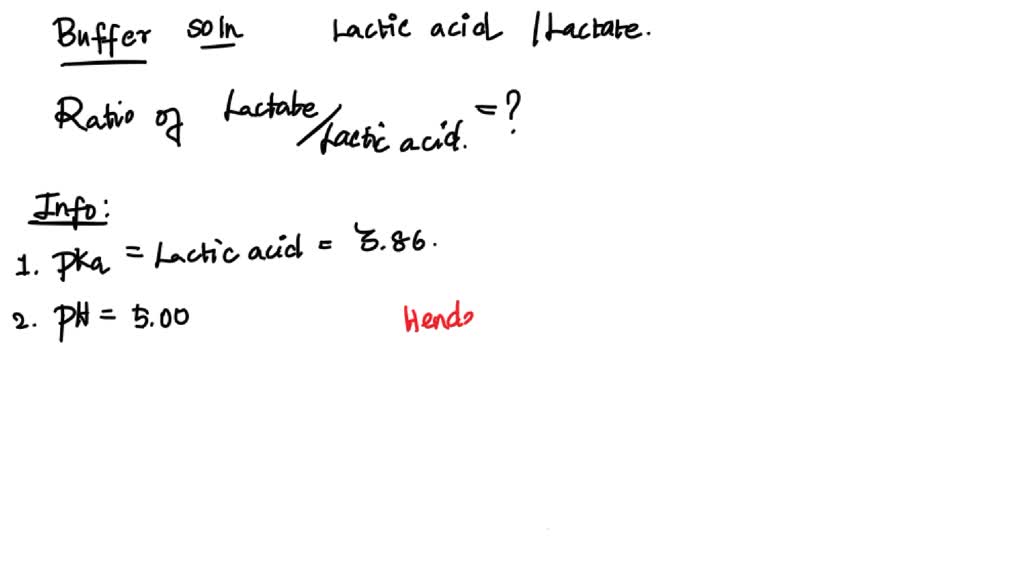 Buffer soln Lactic acid / Lactate.
Ratio of Lactate / Lactic acid. = ?
Info:
1. PKa = Lactic acid = 3.86.
2. PH = 5.00 Hende